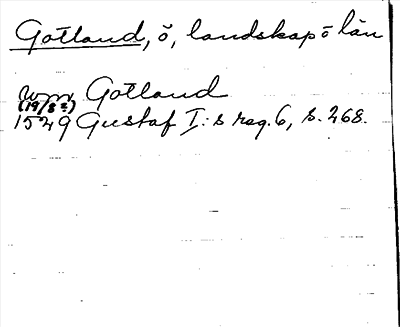 Gotland, ö, landskap o län
Gotland
(19/8 )
1529 Gustaf I:s reg. 6, s. 268.